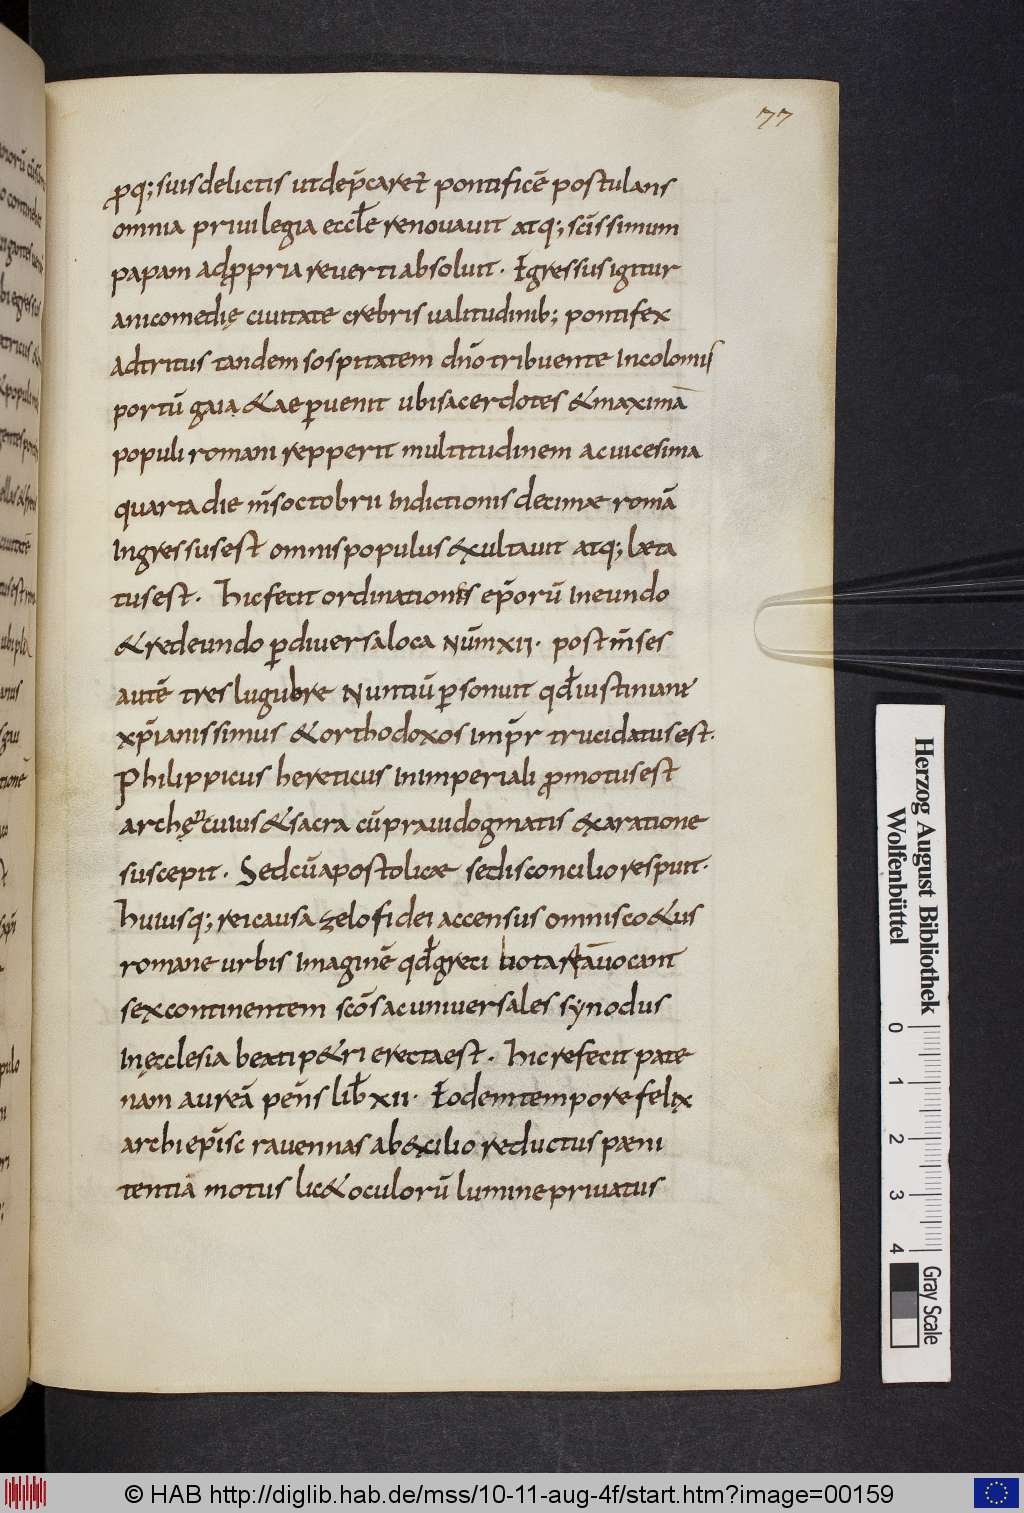 77
ꝓq;suis delictis ut dep̄caret pontificē postulans
omnia priuilegia eccłe renouauit atq; sc̄issimum
papam adꝓpria reuerti absoluit. Egressus igitur
anicomedię ciuitate crebris ualitudinib; pontifex
adtritus tandem sospitatem dn̄o tribuente incolomis
portū gaia &ae ꝑuenit ubi sacerdotes &maximā
populi romani repperit multitudinem ac uicesima
quarta die m̄s octobrii indictionis decimae romā
ingressus est omnis populus exultauit atq; læta
tus est. hic fecit ordinationes ep̄orū ineundo
&redeundo ꝑdiuersa loca Nūm xii. post m̄ses
autē tres lugubre Nuntiū ꝑsonuit qđ iustiniane
xp̄ianissimus &orthodoxos imp̄r trucidatus est.
Philippicus hereticus inimperiali ꝓmotus est
archę cuius &sacra cū praui dogmatis exaratione
suscepit. Sed cū apostolicae sedis concilio respuit.
huiusq; rei causa zelo fidei accensus omnis co&us
romane urbis imaginē qđ greci uocant
sex continentem sc̄os ac uniuersales synodus
inęcclesia beati p&ri erecta est. hic refecit pate
nam aureā pen̄s lib xii. Eodem tempore felix
archiep̄isc rauennas ab excilio reductus pæni
tentia motus lic& oculorū lumine priuatus
Herzog August Bibliothek
Wolfenbüttel
0 1 2 3 4
Gray Scale
© HAB http://diglib.hab.de/mss/10-11-aug-4f/start.htm?image=00159